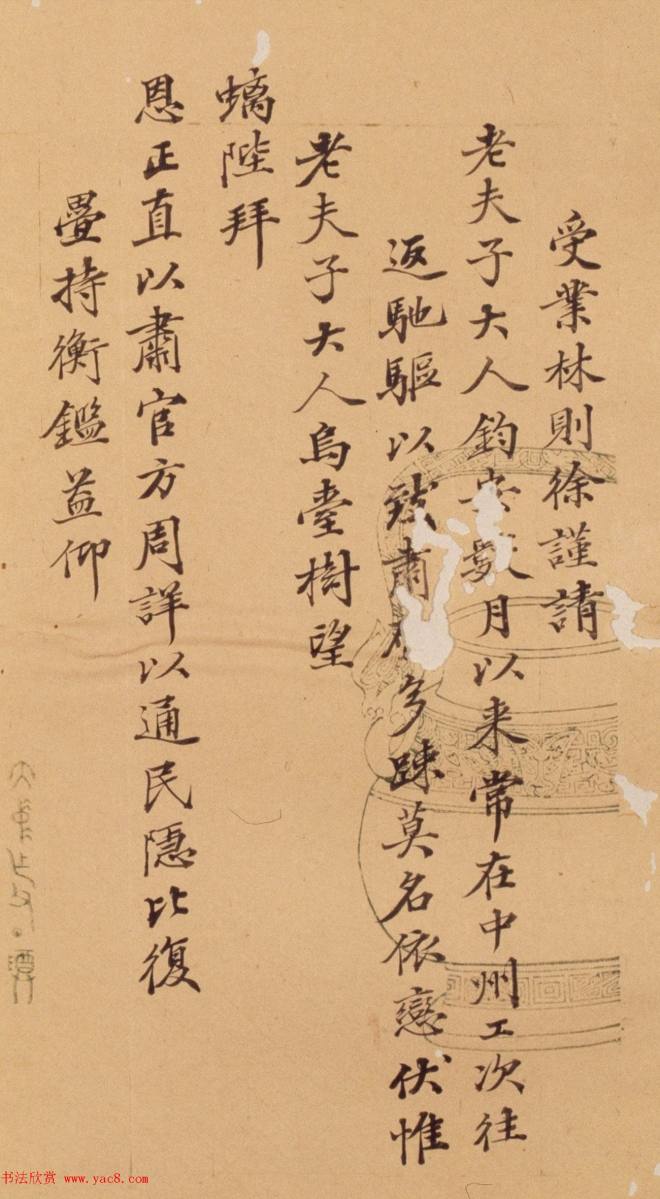 受業林則徐謹請
老夫子大人鈞安數月以来常在中州工次往
返馳驅以致肅多踈莫名依戀伏惟
老夫子大人烏臺樹望
螭陛拜
恩正直以肅官方周詳以通民隱比復
疊持衡鑑益仰
书法欣赏 www.yac8.com